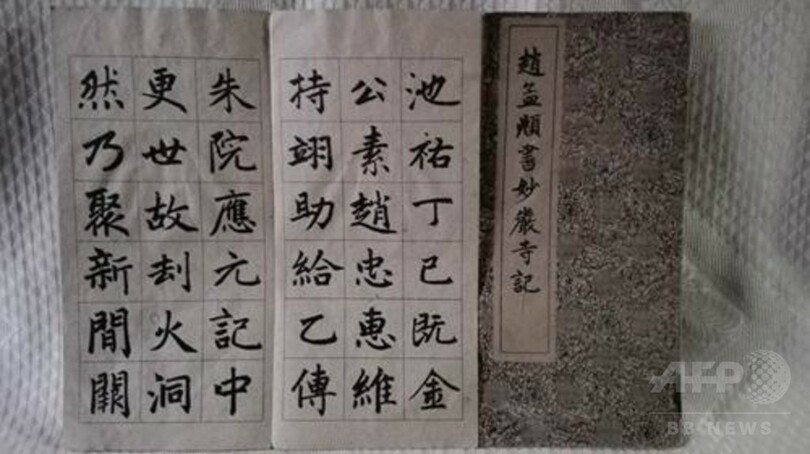 趙孟頫書妙嚴寺記
池祐丁已既金
公素趙忠惠維
持翊助給乙傳
朱院應元記中
更世故刦火洞
然乃聚新閒闢
AFP
BB NEWS